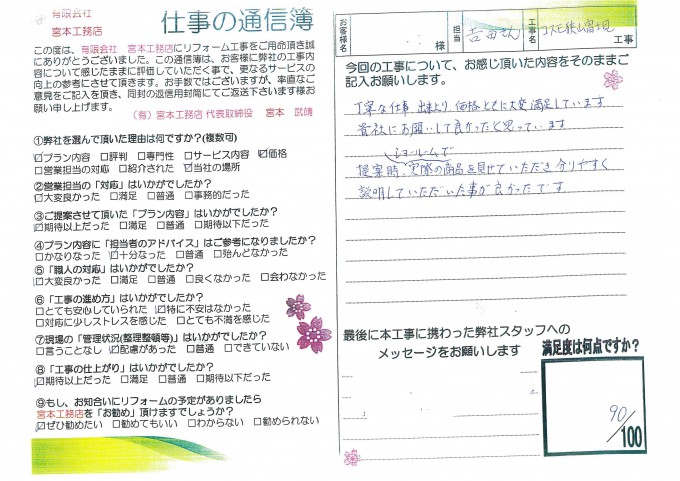 有限会社
宮本工務店
仕事の通信簿
この度は、有限会社 宮本工務店にリフォーム工事をご用命頂き誠
にありがとうございました。この通信簿は、お客様に弊社の工事内
容について感じたままに評価していただく事で、更なるサービスの
向上の参考にさせて頂きます。お手数ではございますが、率直なご
意見をご記入を頂き、同封の返信用封筒にてご返送下さいます様お
願い申し上げます。
(有)宮本工務店 代表取締役 宮本 武靖
①弊社を選んで頂いた理由は何ですか?(複数可)
☑プラン内容 □評判 □専門性 □サービス内容 ☑価格
□営業担当の対応 □紹介された ☑当社の場所
②営業担当の「対応」はいかがでしたか?
☑大変良かった □満足 □普通 □事務的だった
③ご提案させて頂いた「プラン内容」はいかがでしたか?
□期待以上だった ☑満足 □普通 □期待以下だった
④プラン内容に「担当者のアドバイス」はご参考になりましたか?
□かなりなった ☑十分なった □普通 □殆んどなかった
⑤「職人の対応」はいかがでしたか?
☑大変良かった □満足 □普通 □良くなかった □会わなかった
⑥「工事の進め方」はいかがでしたか?
□とても安心していられた ☑特に不安はなかった
□対応に少しストレスを感じた □とても不満を感じた
⑦現場の「管理状況(整理整頓等)」はいかがでしたか?
□言うことなし ☑配慮があった □普通 □できていない
⑧「工事の仕上がり」はいかがでしたか?
☑期待以上だった □満足 □普通 □期待以下だった
⑨もし、お知合いにリフォームの予定がありましたら
宮本工務店を「お勧め」頂けますでしょうか?
☑ぜひ勧めたい □勧めてもいい □わからない □勧められない
お客様名 様 担当 吉田さん 工事名 コスモ狭山富士見 工事
今回の工事について、お感じ頂いた内容をそのままご
記入お願いします。
丁寧な仕事 出来上り、価格ともに大変満足しています
貴社にお願いして良かったと思っています
ショールームで
提案時、実際の商品を見せていただき分りやすく
説明していただいた事が良かったです。
最後に本工事に携わった弊社スタッフへの
メッセージをお願いします
満足度は何点ですか?
90/100